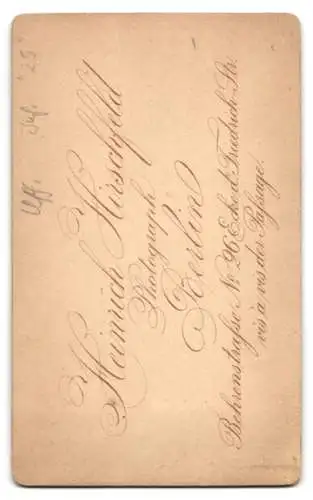 Heinrich Hirschfeld
Photograph
Berlin
Behrenstraße No 26 Ecke d. Friedrich-Str.
vis à vis der Passage.
Uff. Inf. "25"